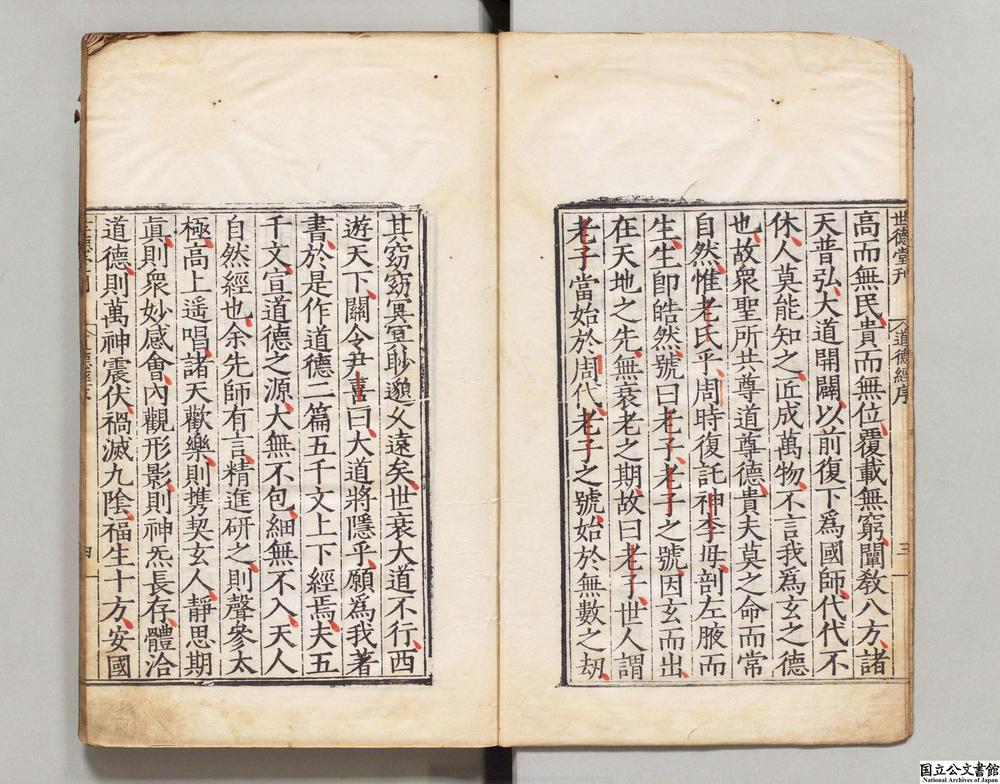 世德堂刊
道德經序
三
高而無民貴而無位覆載無窮闡敎八方諸
天普弘大道開闢以前復下爲國師代代不
休人莫能知之匠成萬物不言我爲玄之德
也故衆聖所共尊道尊德貴夫莫之命而常
自然惟老氏乎周時復託神李母剖左腋而
生生即皓然號曰老子老子之號因玄而出
在天地之先無衰老之期故曰老子世人謂
老子當始於周代老子之號始於無數之刼
其窈窈冥冥眇邈久遠矣世衰大道不行西
遊天下關令尹喜曰大道將隱乎願爲我著
書於是作道德二篇五千文上下經焉夫五
千文宣道德之源大無不包細無不入天人
自然經也余先師有言精進研之則聲參太
極高上遥唱諸天歡樂則携契玄人靜思期
眞則衆妙感會內觀形影則神炁長存體洽
道德則萬神震伏禍滅九陰福生十方安國
四
国立公文書館
National Archives of Japan